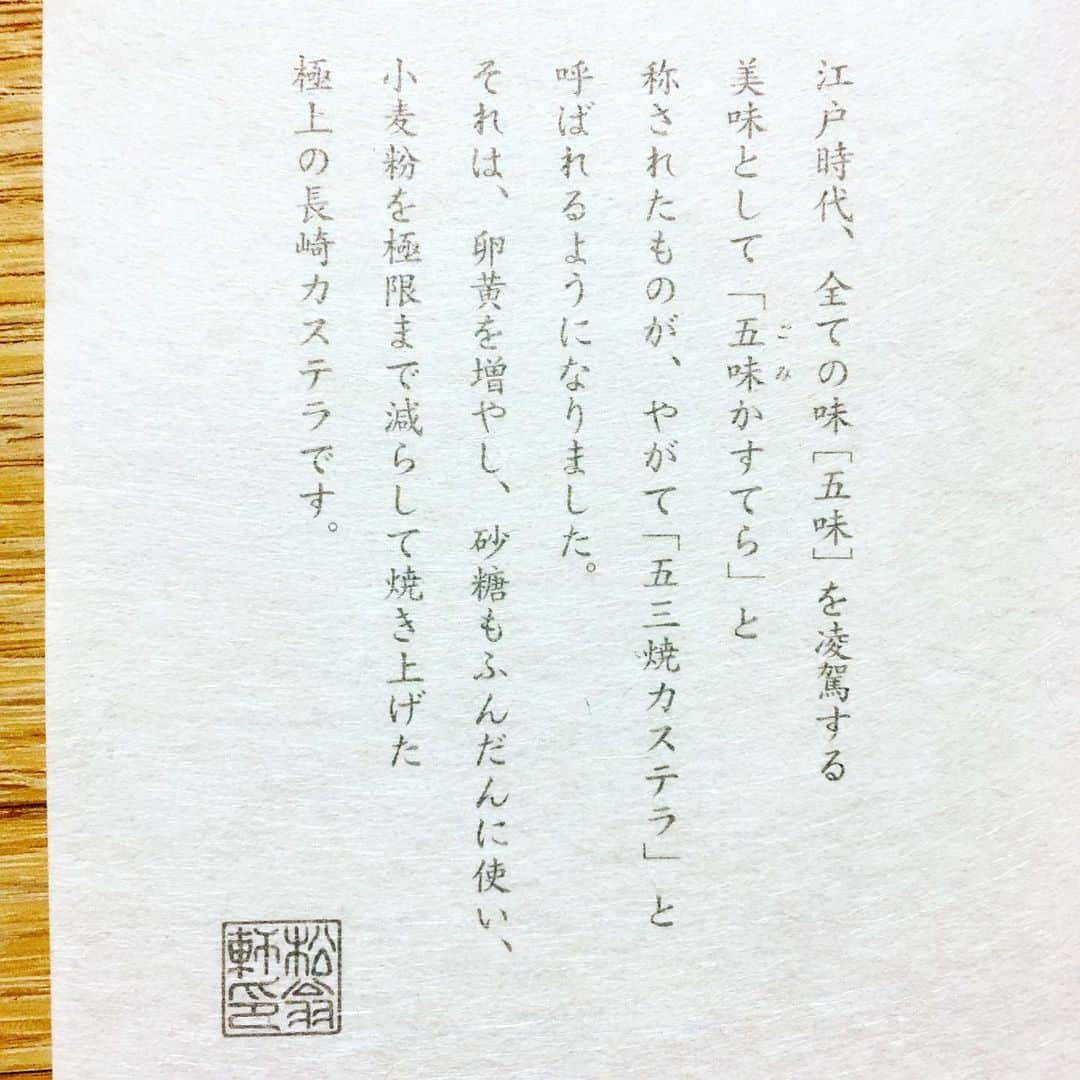 江戸時代、全ての味［五味］を凌駕する
美味として「五味かすてら」と
ごみ
称されたものが、やがて「五三焼カステラ」と
呼ばれるようになりました。
それは、卵黄を増やし、砂糖もふんだんに使い、
小麦粉を極限まで減らして焼き上げた
極上の長崎カステラです。
松翁
軒印